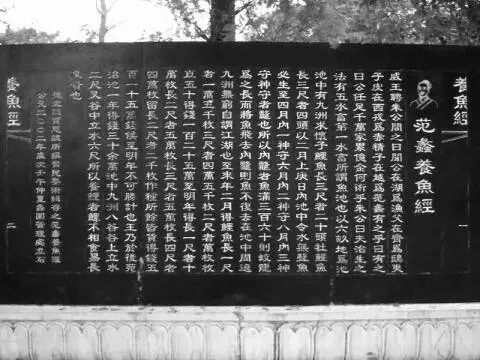 養魚經
一
范蠡養魚經
威王聘朱公問之曰聞公在湖爲漁父在齊爲鴟夷
子皮在西戎爲赤精子在越爲范蠡有之乎曰有之
曰公任足千萬家累億金何術乎朱公曰夫治生之
法有五水畜第一水畜所謂魚池也以六畝地爲池
池中有九洲求懷子鯉魚長三尺者二十頭牡鯉魚
長三尺者四頭以二月上庚日內池中令水無聲魚
必生至四月內一神守六月內二神守八月內三神
守神守者鼈也所以內鼈者魚滿三百六十則蛟龍
爲之長而將魚飛去內鼈則魚不復去在池中周遶
九洲無窮自謂江湖也至來年二月得鯉魚長一尺
者一萬五千枚三尺者四萬五千枚二尺者萬枚枚
直五十得錢一百二十五萬至明年得長一尺者十
萬枚長二尺者五萬枚長三尺者五萬枚長四尺者
四萬枚留長二尺者二千枚作種所餘皆貨得錢五
百一十五萬錢候至明年不可勝計也王乃於後苑
治池一年得錢三十余萬池中九洲八谷谷上立水
二尺又谷中立水六尺所以養鯉者鯉不相食易長
又貴也
北魏賈思勰所撰齊民要術輯存之范蠡養魚經
公元二〇〇二年歲次壬午仲夏蠡園管理處立石
養魚經
二